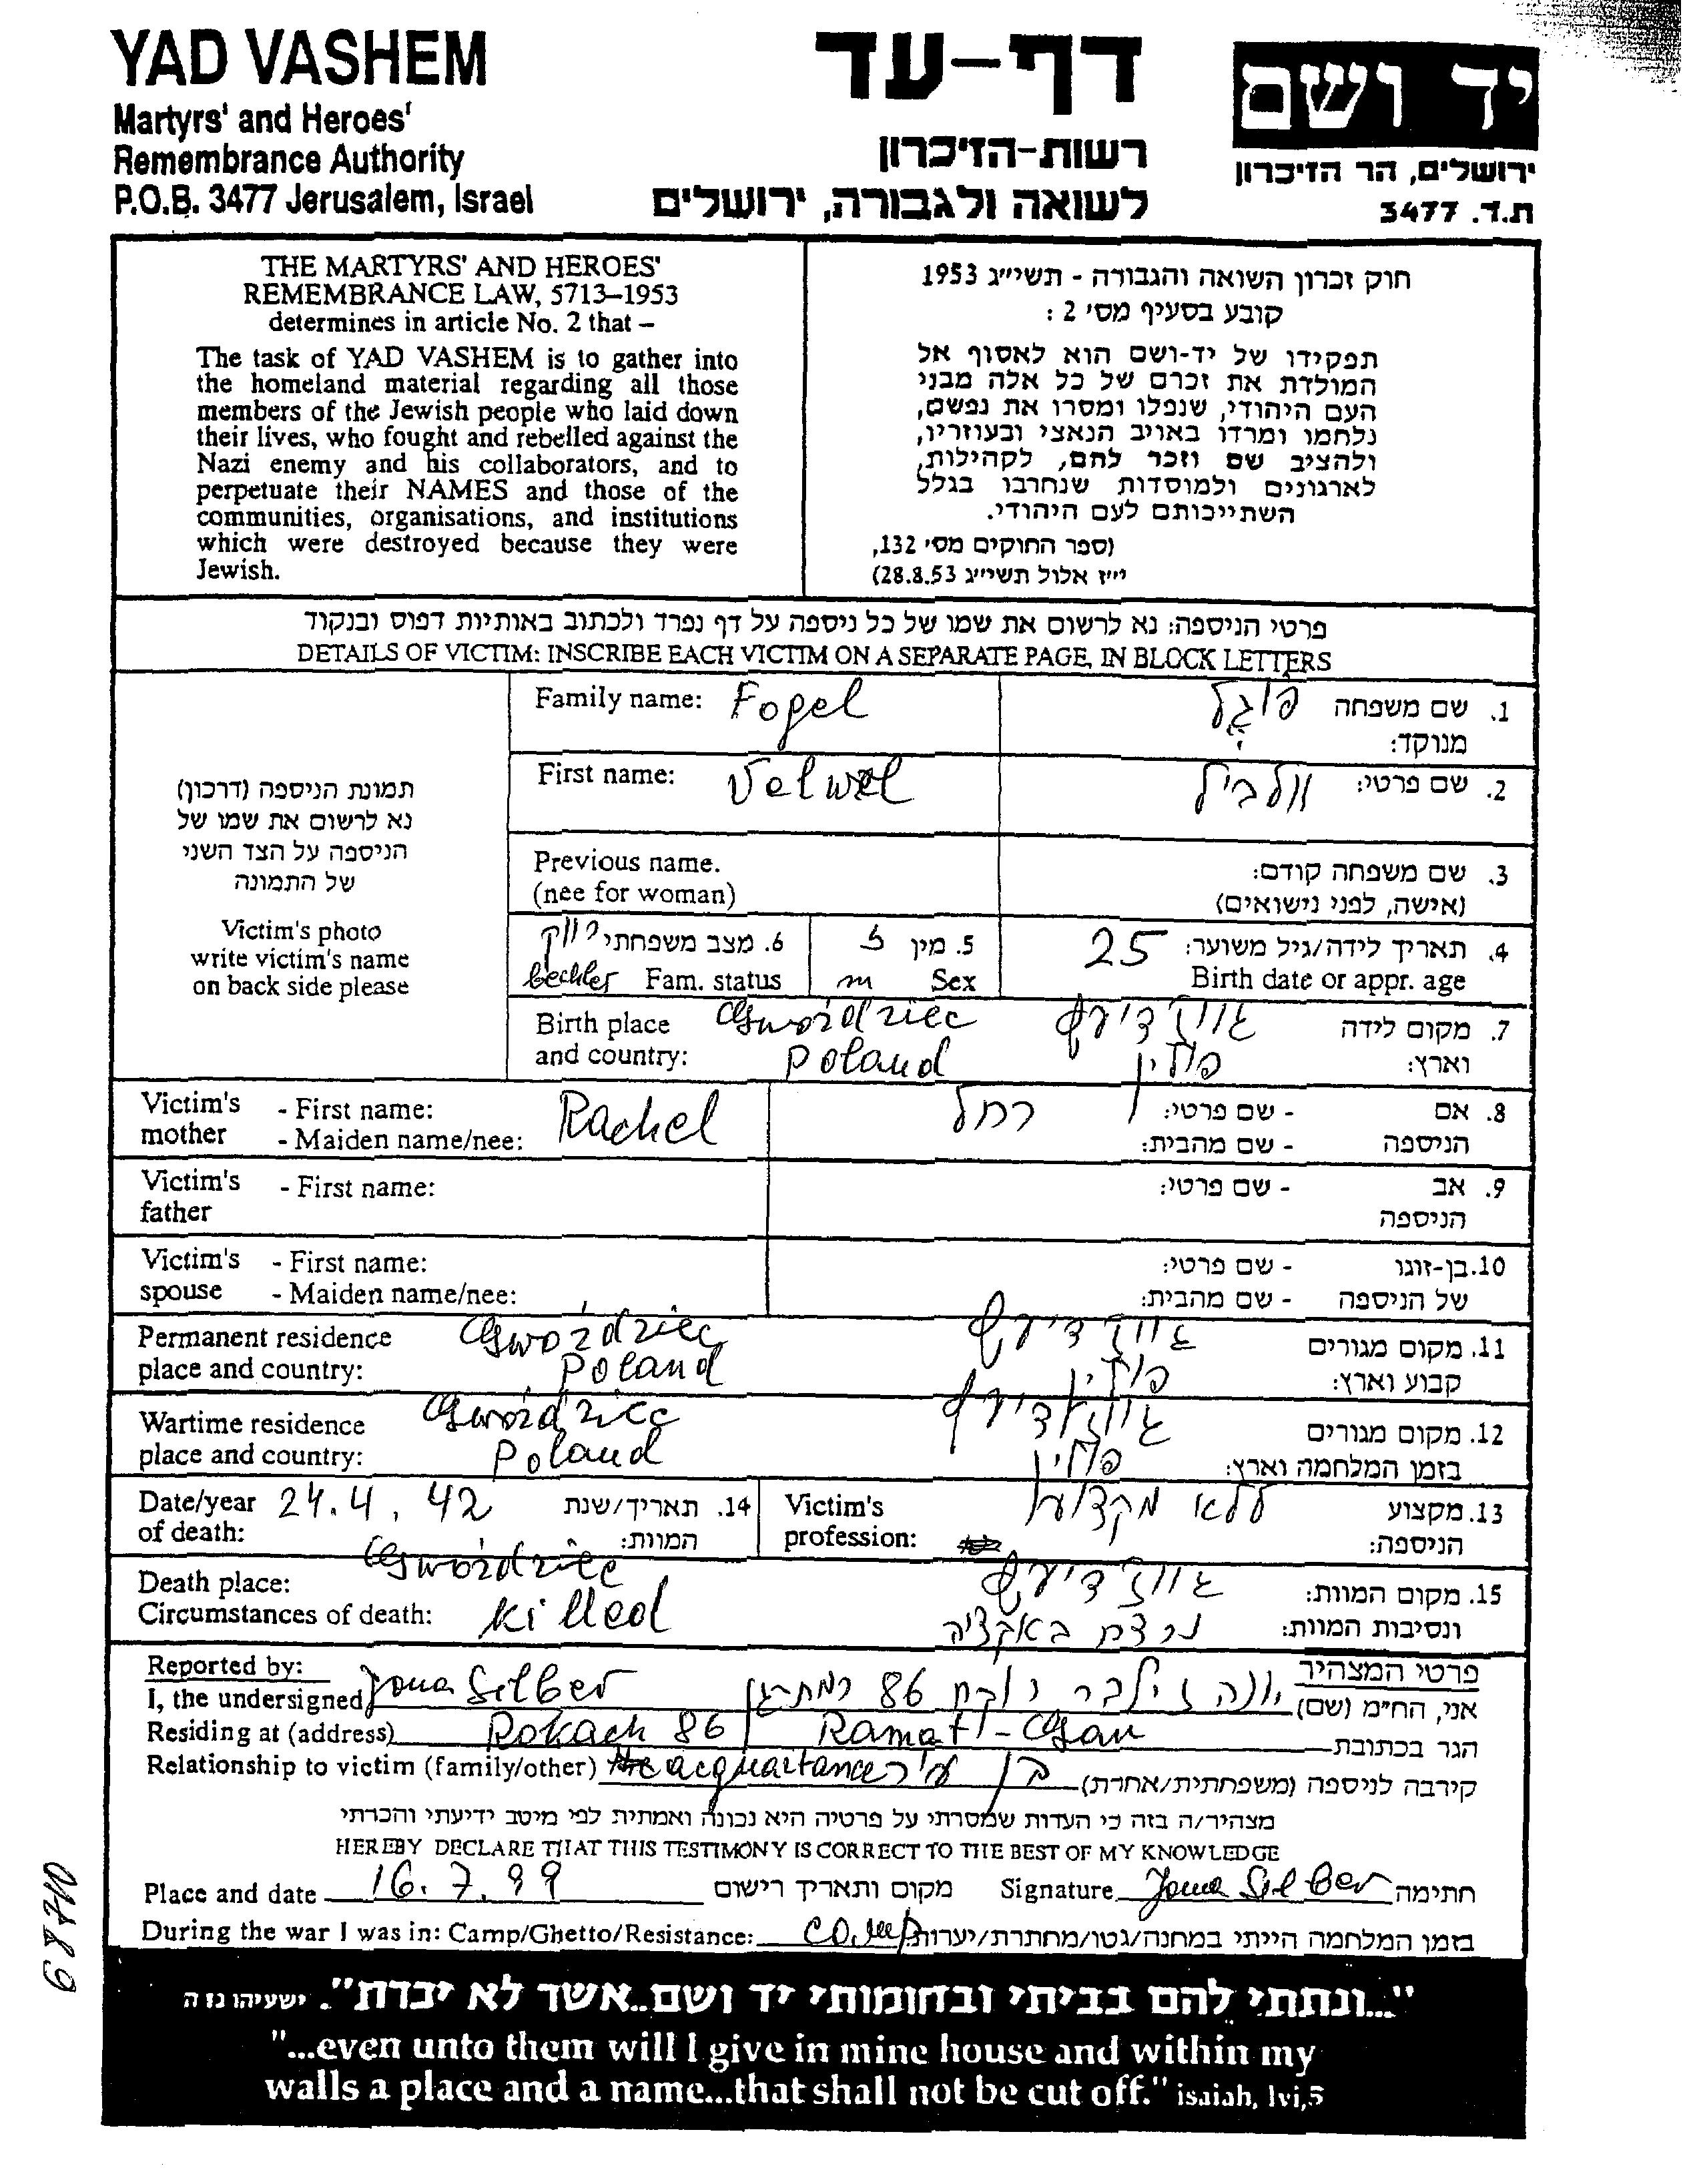 YAD VASHEM
Martyrs' and Heroes'
Remembrance Authority
P.O.B. 3477 Jerusalem, Israel
דף-עד
רשות-הזיכרון
לשואה ולגבורה, ירושלים
יד ושם
ירושלים, הר הזיכרון
ת.ד. 3477
THE MARTYRS' AND HEROES'
REMEMBRANCE LAW, 5713–1953
determines in article No. 2 that –
The task of YAD VASHEM is to gather into
the homeland material regarding all those
members of the Jewish people who laid down
their lives, who fought and rebelled against the
Nazi enemy and his collaborators, and to
perpetuate their NAMES and those of the
communities, organisations, and institutions
which were destroyed because they were
Jewish.
חוק זכרון השואה והגבורה - תשי״ג 1953
קובע בסעיף מס׳ 2 :
תפקידו של יד-ושם הוא לאסוף אל
המולדת את זכרם של כל אלה מבני
העם היהודי, שנפלו ומסרו את נפשם,
נלחמו ומרדו באויב הנאצי ובעוזריו,
ולהציב שם וזכר להם, לקהילות,
לארגונים ולמוסדות שנחרבו בגלל
השתייכותם לעם היהודי.
(ספר החוקים מס׳ 132,
י״ז אלול תשי״ג 28.8.53)
פרטי הניספה: נא לרשום את שמו של כל ניספה על דף נפרד ולכתוב באותיות דפוס ובנקוד
DETAILS OF VICTIM: INSCRIBE EACH VICTIM ON A SEPARATE PAGE, IN BLOCK LETTERS
תמונת הניספה (דרכון)
נא לרשום את שמו של
הניספה על הצד השני
של התמונה
Victim's photo
write victim's name
on back side please
Family name: Fogel
1. שם משפחה פוגל
מנוקד:
First name: Velwel
2. שם פרטי: וולביל
Previous name.
(nee for woman)
3. שם משפחה קודם:
(אישה, לפני נישואים)
4. תאריך לידה/גיל משוער: 25
Birth date or appr. age
5. מין ז
m Sex
6. מצב משפחתי רווק
Fam. status
Birth place Gwozdziec
and country: Poland
7. מקום לידה
וארץ: פולין
Victim's - First name: Rachel
mother - Maiden name/nee:
8. אם - שם פרטי: רחל
הניספה - שם מהבית:
Victim's - First name:
father
9. אב - שם פרטי:
הניספה
Victim's - First name:
spouse - Maiden name/nee:
10. בן-זוגו - שם פרטי:
של הניספה - שם מהבית:
Permanent residence Gwozdziec
place and country: Poland
11. מקום מגורים
קבוע וארץ: פולין
Wartime residence Gwozdziec
place and country: Poland
12. מקום מגורים
בזמן המלחמה וארץ: פולין
Date/year 24.4.42
of death:
14. תאריך/שנת
המוות:
Victim's
profession:
13. מקצוע ללא מקצוע
הניספה:
Death place: Gwozdziec
Circumstances of death: killed
15. מקום המוות:
ונסיבות המוות: נרצח באקציה
Reported by:
I, the undersigned Jona Silber
פרטי המצהיר
אני, הח״מ (שם) יונה זילבר רוקח 86 רמת גן
Residing at (address) Rokach 86 Ramat-Gan
הגר בכתובת
Relationship to victim (family/other) acquaitance
קירבה לניספה (משפחתית/אחרת) בן עיר
מצהיר/ה בזה כי העדות שמסרתי על פרטיה היא נכונה ואמתית לפי מיטב ידיעתי והכרתי
HEREBY DECLARE THAT THIS TESTIMONY IS CORRECT TO THE BEST OF MY KNOWLEDGE
Place and date 16.7.99 מקום ותאריך רישום
Signature Jona Silber חתימה
During the war I was in: Camp/Ghetto/Resistance: camp בזמן המלחמה הייתי במחנה/גטו/מחתרת/יערות
"...ונתתי להם בביתי ובחומותי יד ושם..אשר לא יכרת". ישעיהו נו ה
"...even unto them will I give in mine house and within my
walls a place and a name...that shall not be cut off." isaiah, lvi,5